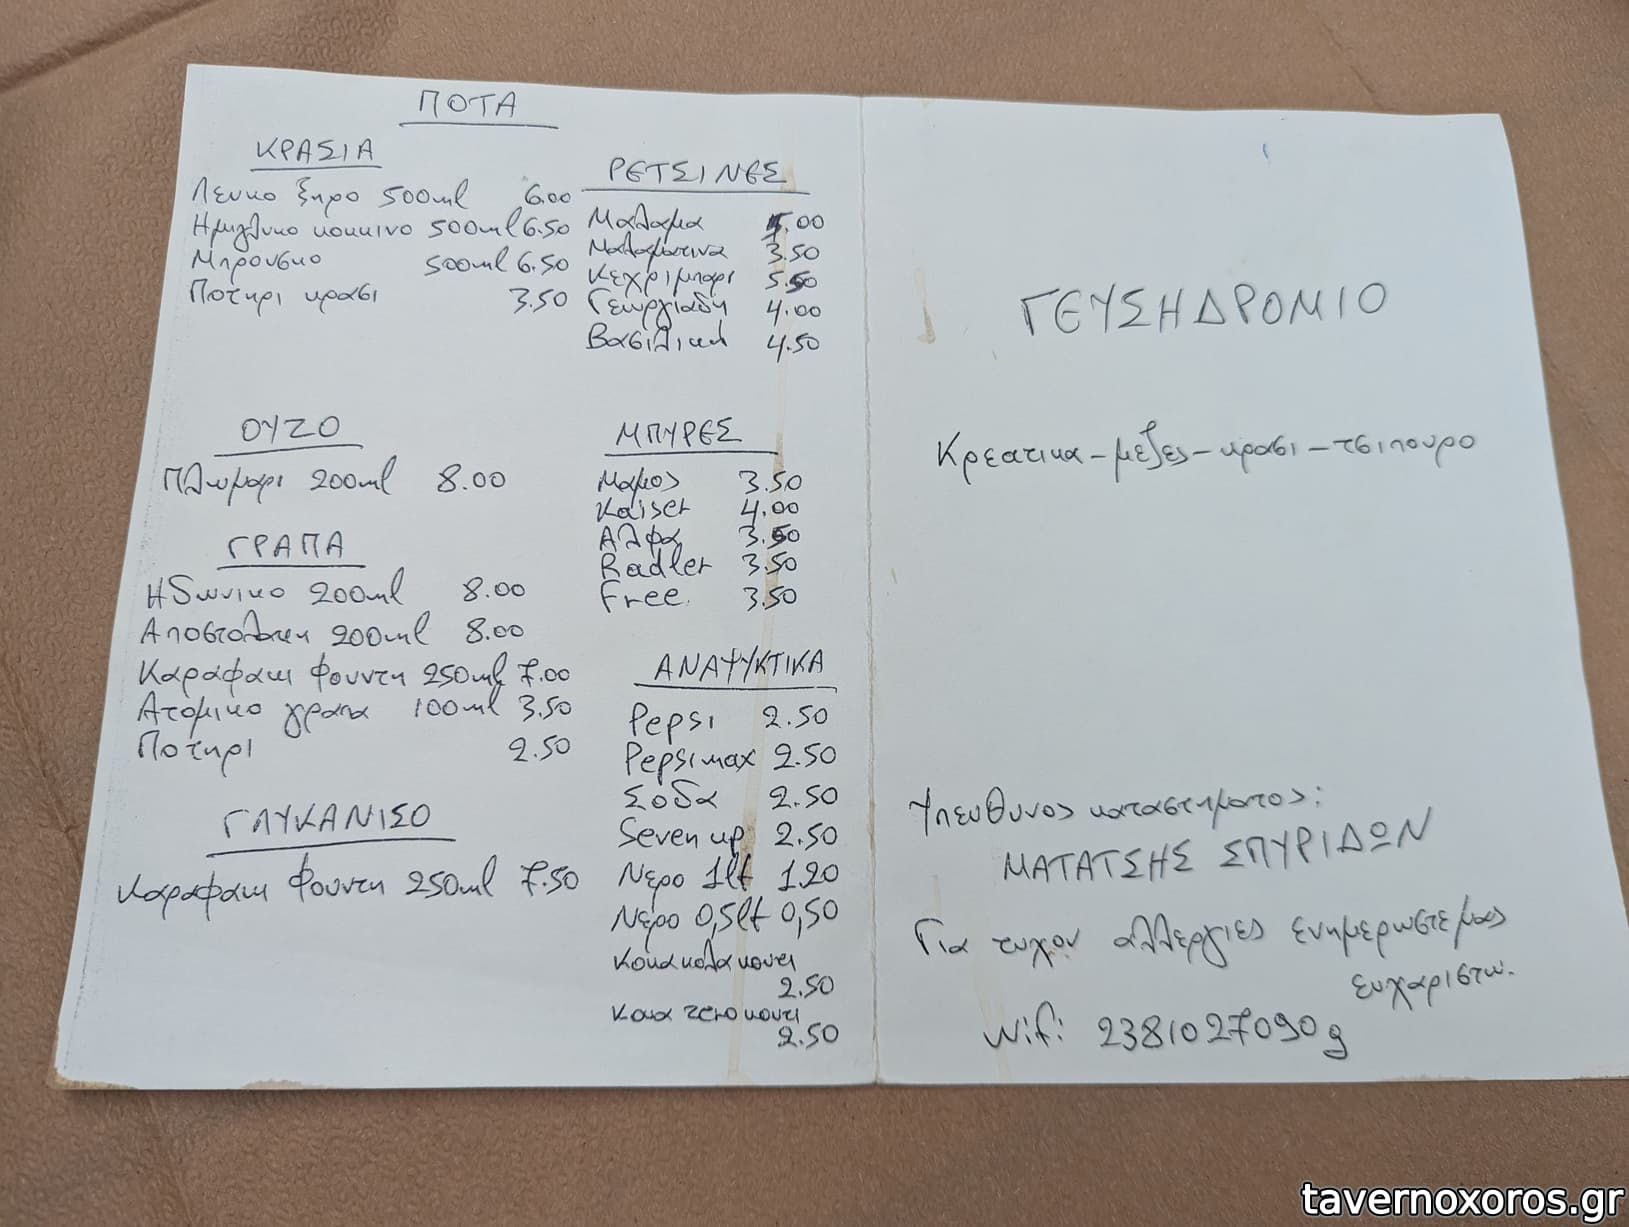 ΠΟΤΑ
ΚΡΑΣΙΑ
Λευκο ξηρο 500ml 6.00
Ημιγλυκο κοκκινο 500ml 6.50
Μπρουσκο 500ml 6.50
Ποτηρι κρασι 3.50
ΡΕΤΣΙΝΕΣ
Μαλαμα .00
Μαλαματινα 3.50
Κεχριμπαρι 5.50
Γεωργιαδη 4.00
Βασιλικη 4.50
ΟΥΖΟ
Πλωμαρι 200ml 8.00
ΓΡΑΠΑ
Ηδωνικο 200ml 8.00
Αποστολακη 200ml 8.00
Καραφακι Φουντη 250ml 7.00
Ατομικο γραπα 100ml 3.50
Ποτηρι 2.50
ΓΛΥΚΑΝΙΣΟ
Καραφακι Φουντη 250ml 7.50
ΜΠΥΡΕΣ
Μαμος 3.50
Kaiser 4.00
Αλφα 3.50
Radler 3.50
Free 3.50
ΑΝΑΨΥΚΤΙΚΑ
Pepsi 2.50
Pepsi max 2.50
Σοδα 2.50
Seven up 2.50
Νερο 1lt 1.20
Νερο 0,5lt 0,50
Κοκα κολα κουτι
2.50
Κοκα zero κουτι
2.50
ΓΕΥΣΗΔΡΟΜΙΟ
Κρεατικα - μεζες - κρασι - τσιπουρο
Υπευθυνος καταστηματος:
ΜΑΤΑΤΣΗΣ ΣΠΥΡΙΔΩΝ
Για τυχον αλλεργιες ενημερωστε μας
ευχαριστω.
Wifi 2381027090g
tavernoxoros.gr